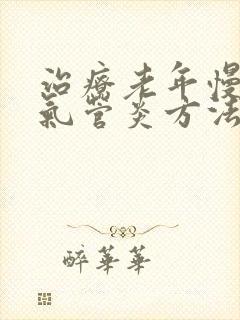 治療老年慢
氣管炎方法
醉華華